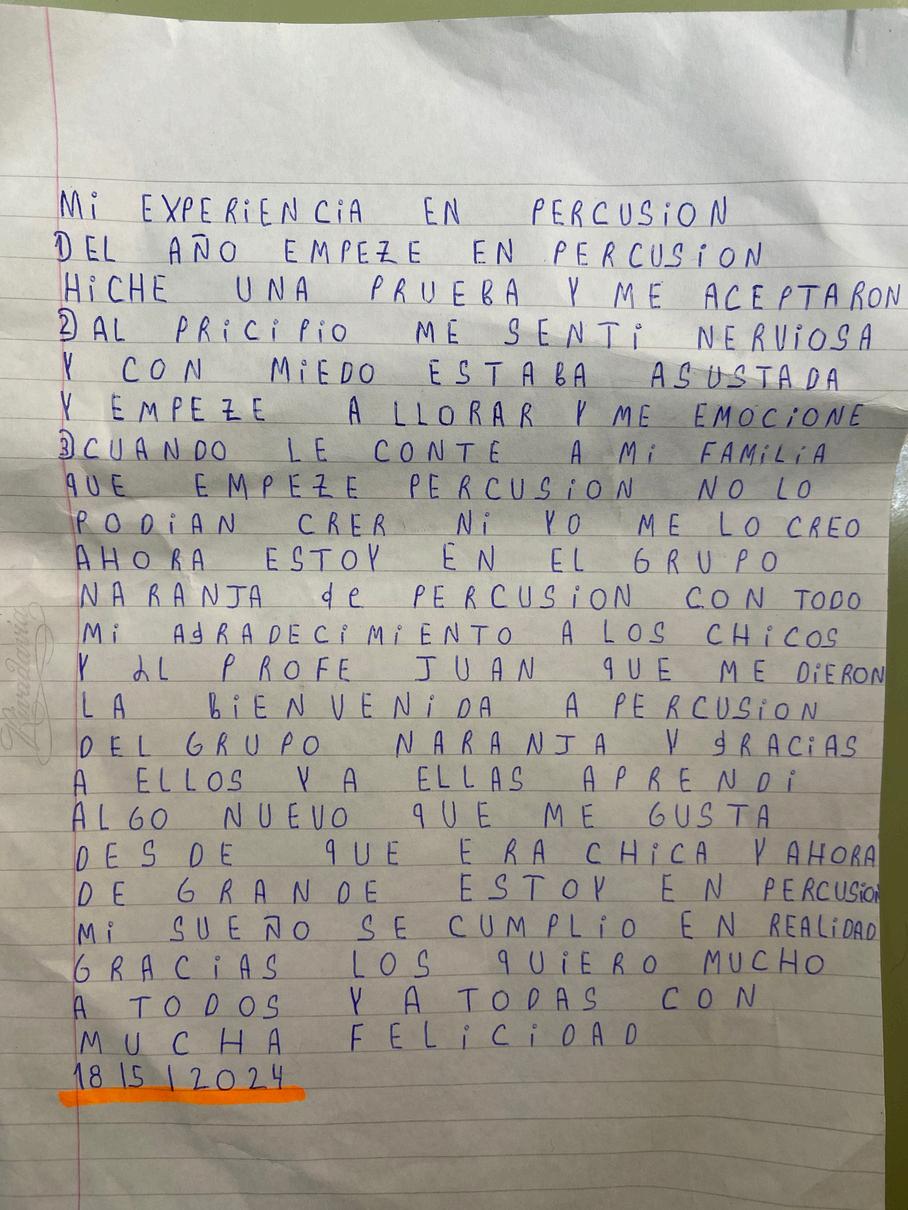 Mi EXPERiENCiA EN PERCUSiON
1) DEL AÑO EMPEZE EN PERCUSiON
HiCHE UNA PRUEBA Y ME ACEPTARON
2) AL PRiCiPiO ME SENTi NERViOSA
Y CON MiEDO ESTABA ASUSTADA
Y EMPEZE A LLORAR Y ME EMOCiONE
3) CUANDO LE CONTE A Mi FAMiLiA
QUE EMPEZE PERCUSiON NO LO
PODiAN CRER Ni YO ME LO CREO
AHORA ESTOY EN EL GRUPO
NARANJA de PERCUSiON CON TODO
Mi AgRADECiMiENTO A LOS CHiCOS
Y AL PROFE JUAN QUE ME DiERON
LA BiENVENiDA A PERCUSiON
DEL GRUPO NARANJA Y gRACiAS
A ELLOS Y A ELLAS APRENDi
ALGO NUEVO QUE ME GUSTA
DESDE QUE ERA CHiCA Y AHORA
DE GRANDE ESTOY EN PERCUSiON
Mi SUEÑO SE CUMPLiO EN REALiDAD
GRACiAS LOS QUiERO MUCHO
A TODOS Y A TODAS CON
MUCHA FELiCiDAD
18 15 | 2024
Rivadavia